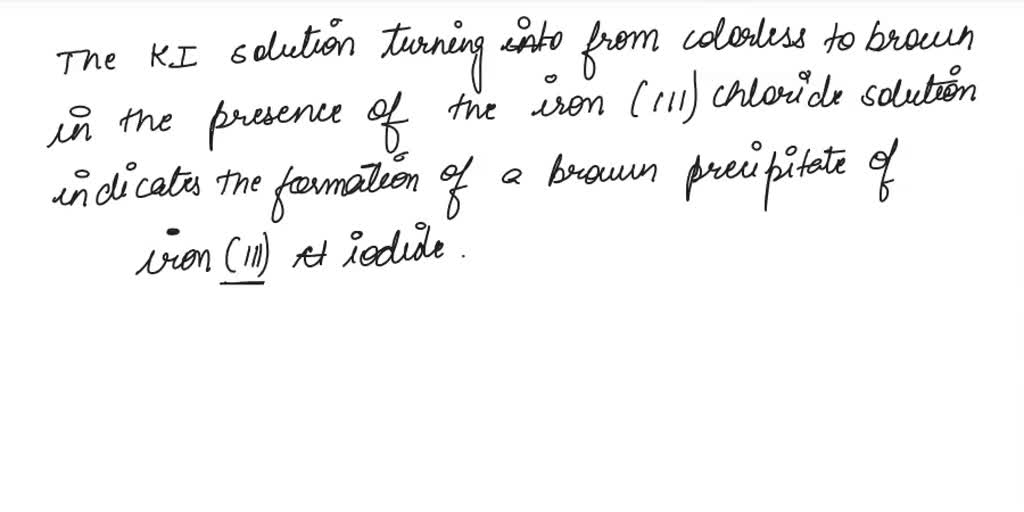 The KI solution turning into from colorless to brown
in the presence of the iron (III) chloride solution
indicates the formation of a brown precipitate of
iron (III) iodide.